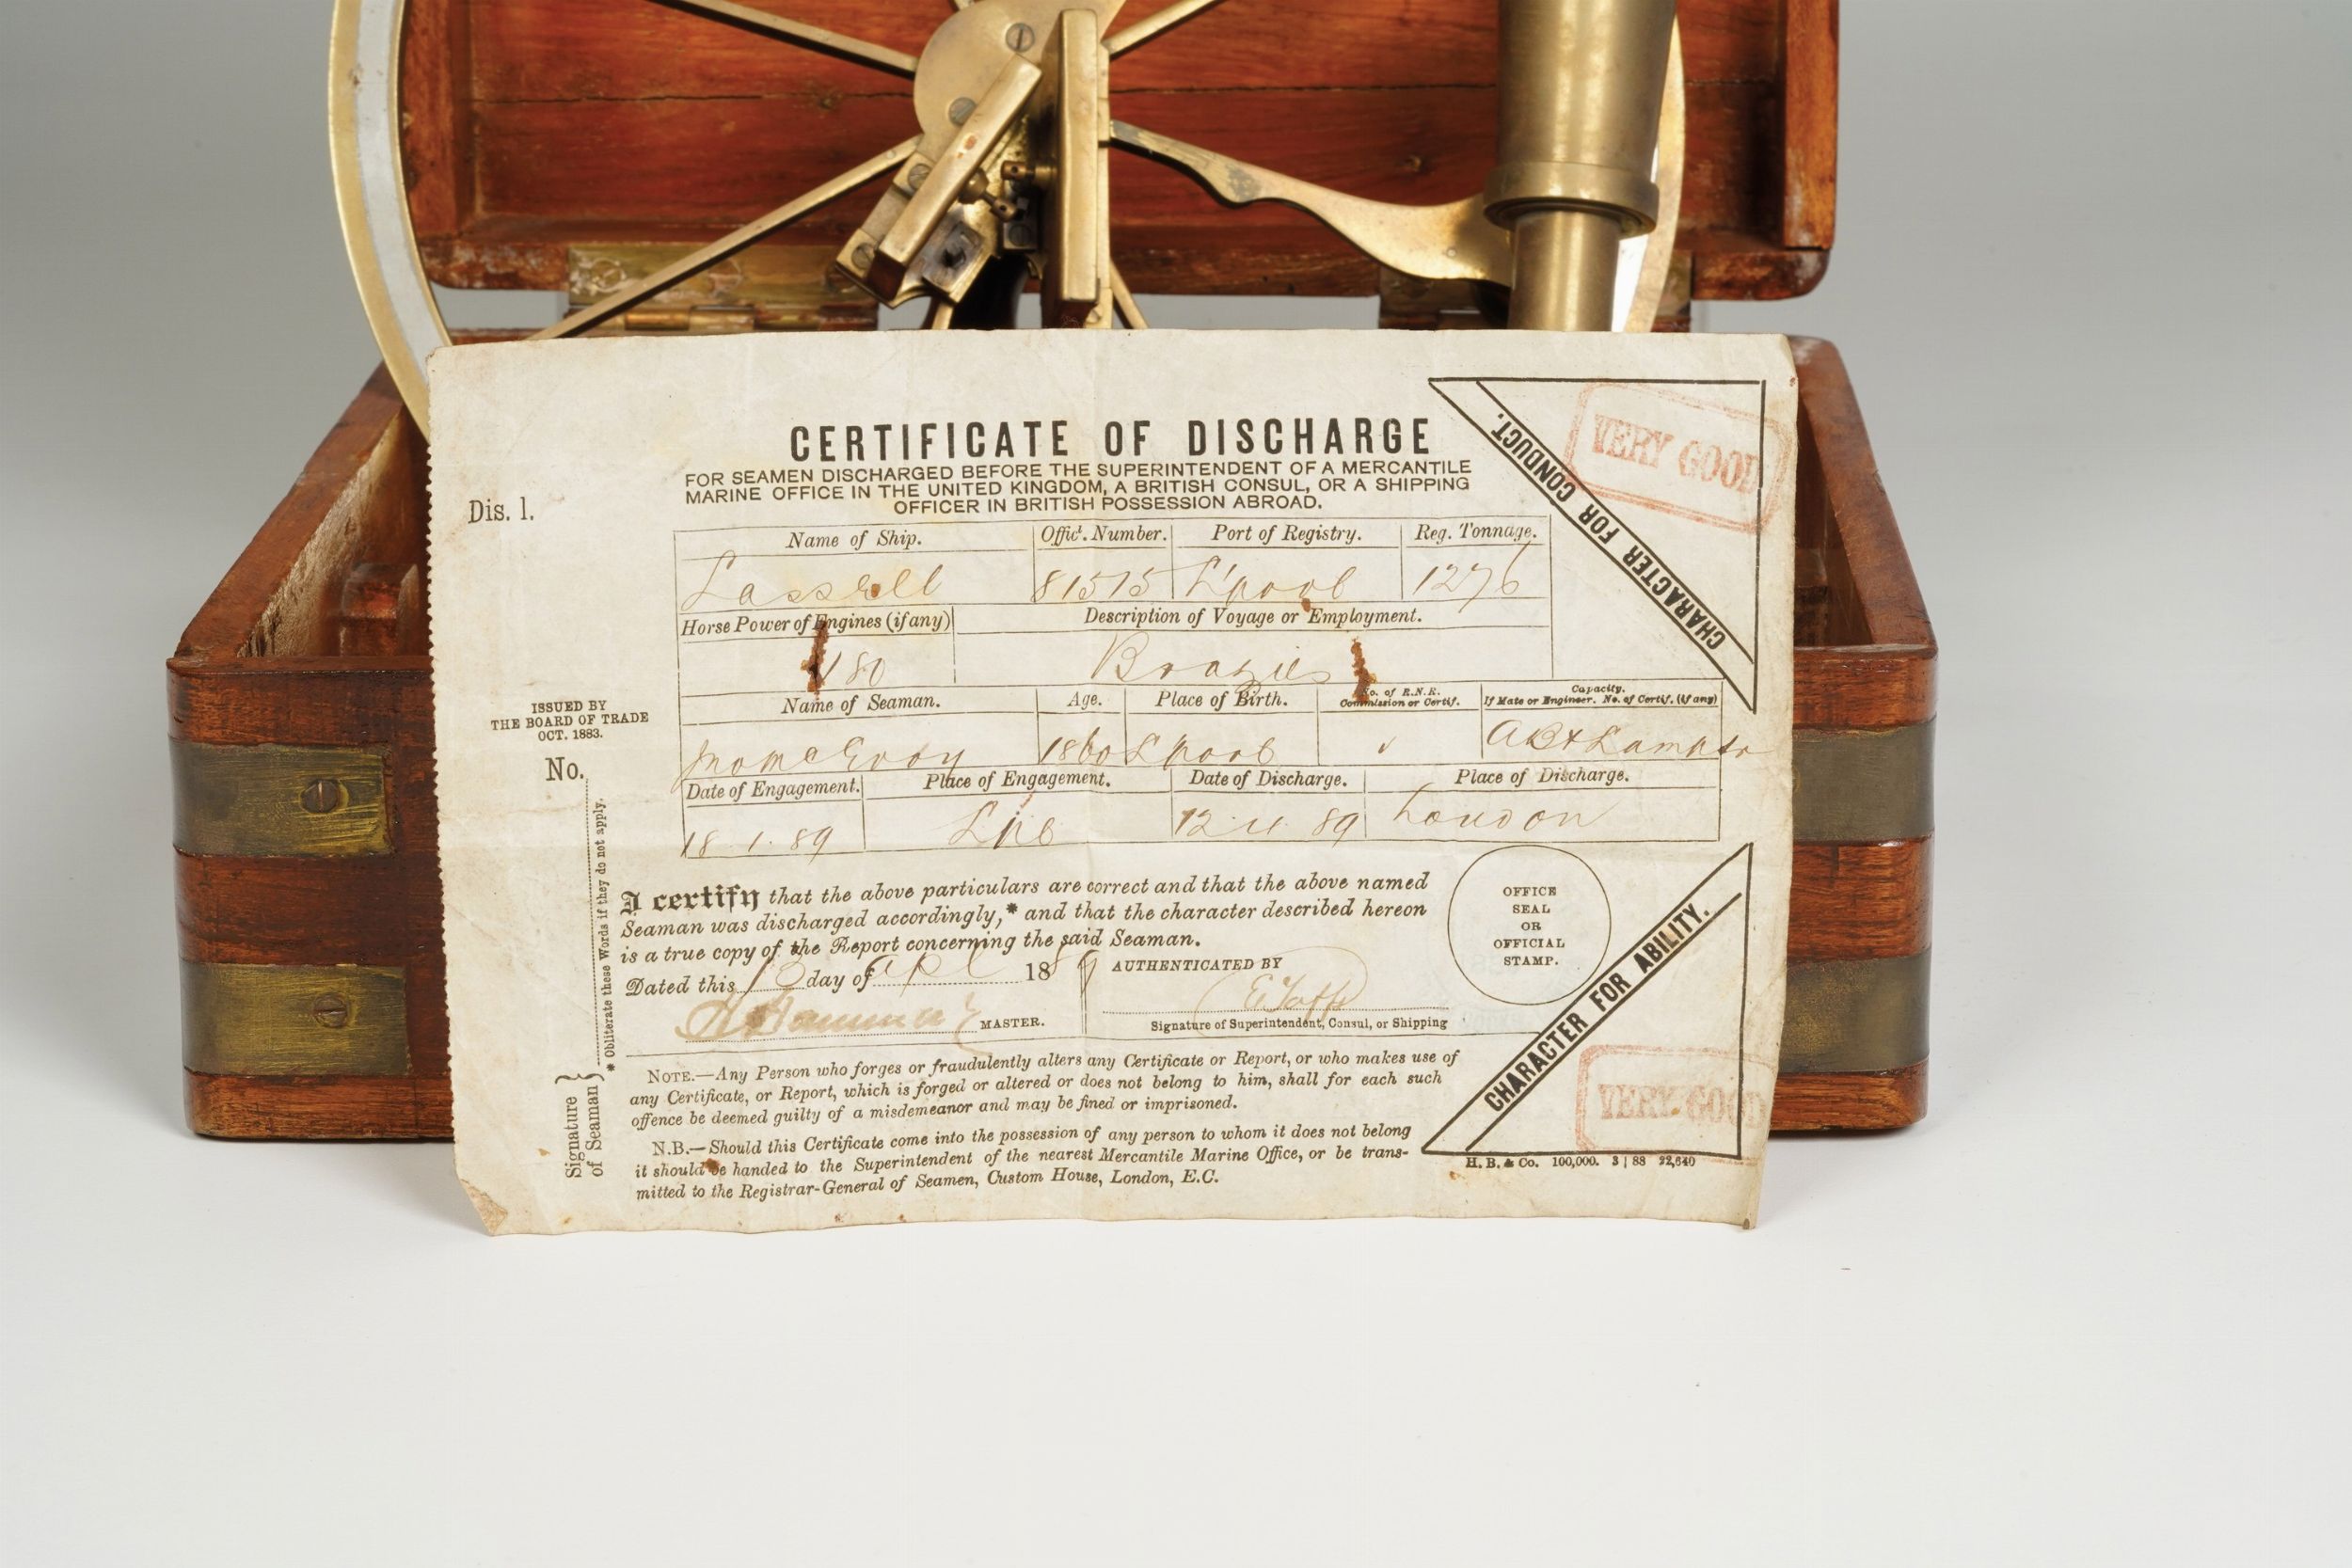 CERTIFICATE OF DISCHARGE
FOR SEAMEN DISCHARGED BEFORE THE SUPERINTENDENT OF A MERCANTILE
MARINE OFFICE IN THE UNITED KINGDOM, A BRITISH CONSUL, OR A SHIPPING
OFFICER IN BRITISH POSSESSION ABROAD.
Dis. 1.
CHARACTER FOR CONDUCT.
VERY GOOD
Name of Ship. Offic'l. Number. Port of Registry. Reg. Tonnage.
Lassell 81515 L'pool 1276
Horse Power of Engines (if any) Description of Voyage or Employment.
180 Brazils
ISSUED BY
THE BOARD OF TRADE
OCT. 1883.
No.
Name of Seaman. Age. Place of Birth. No. of R.N.R. Commission or Certif. Capacity. If Mate or Engineer. No. of Certif. (if any)
McEvoy 1860 L'pool AB & Lamptr
Date of Engagement. Place of Engagement. Date of Discharge. Place of Discharge.
18.1.89 12.4.89 London
* Obliterate these Words if they do not apply.
I certify that the above particulars are correct and that the above named
Seaman was discharged accordingly,* and that the character described hereon
is a true copy of the Report concerning the said Seaman.
Dated this 13 day of Apl 1889 AUTHENTICATED BY
MASTER.
Signature of Superintendent, Consul, or Shipping
OFFICE
SEAL
OR
OFFICIAL
STAMP.
CHARACTER FOR ABILITY.
VERY GOOD
Signature
of Seaman
NOTE.—Any Person who forges or fraudulently alters any Certificate or Report, or who makes use of
any Certificate, or Report, which is forged or altered or does not belong to him, shall for each such
offence be deemed guilty of a misdemeanor and may be fined or imprisoned.
N.B.—Should this Certificate come into the possession of any person to whom it does not belong
it should be handed to the Superintendent of the nearest Mercantile Marine Office, or be trans-
mitted to the Registrar-General of Seamen, Custom House, London, E.C.
H. B. & Co. 100,000. 3 | 88 22,640